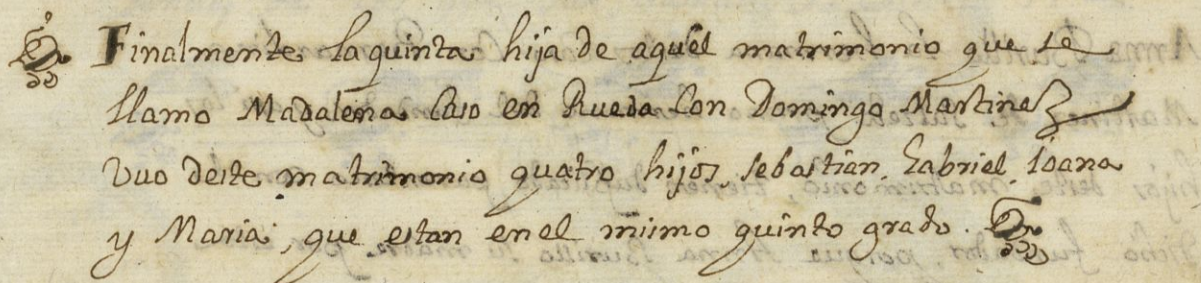 Finalmente la quinta hija de aquel matrimonio que se
llamo Madalena Caso en Rueda Con Domingo Martinez
Uuo deste matrimonio quatro hijos, Sebastian, Gabriel, Ioana
y Maria, que estan en el mismo quinto grado.